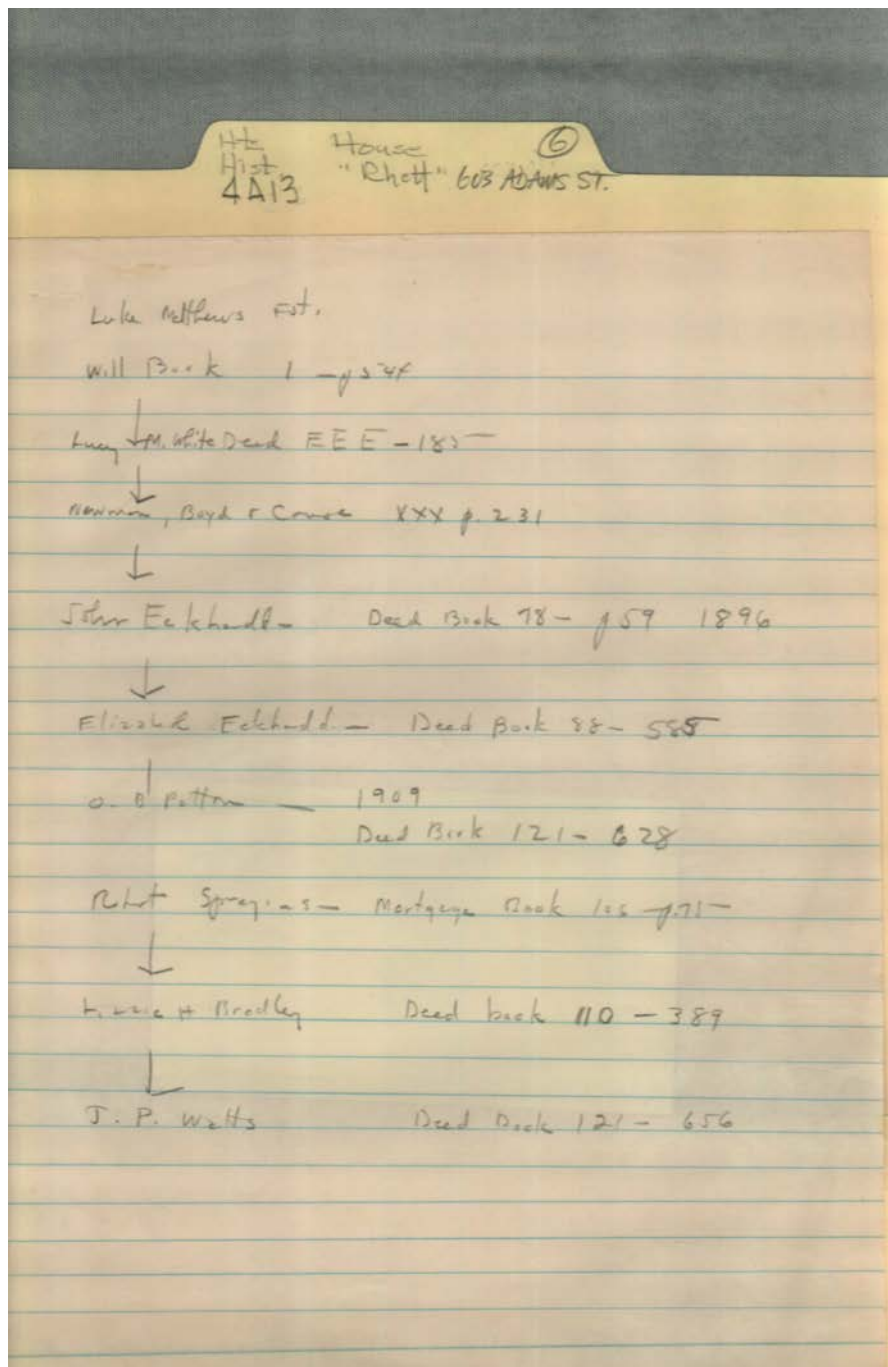 Hts House 6
Hist. "Rhett" 603 ADAMS ST.
4A13
Luke Matthews Est.
Will Book 1 - p 544
Lucy M. White Deed EEE - 185
Newman, Boyd & XXX p. 231
John Eckhardt - Deed Book 78 - p 59 1896
Elizabeth Eckhardt - Deed Book 88 - 585
O. B Patton — 1909
Deed Book 121 - 628
Robert Spragins - Mortgage Book 105 - p.75
Lizzie H Bradley Deed book 110 - 389
J. P. Watts Deed Book 121 - 656